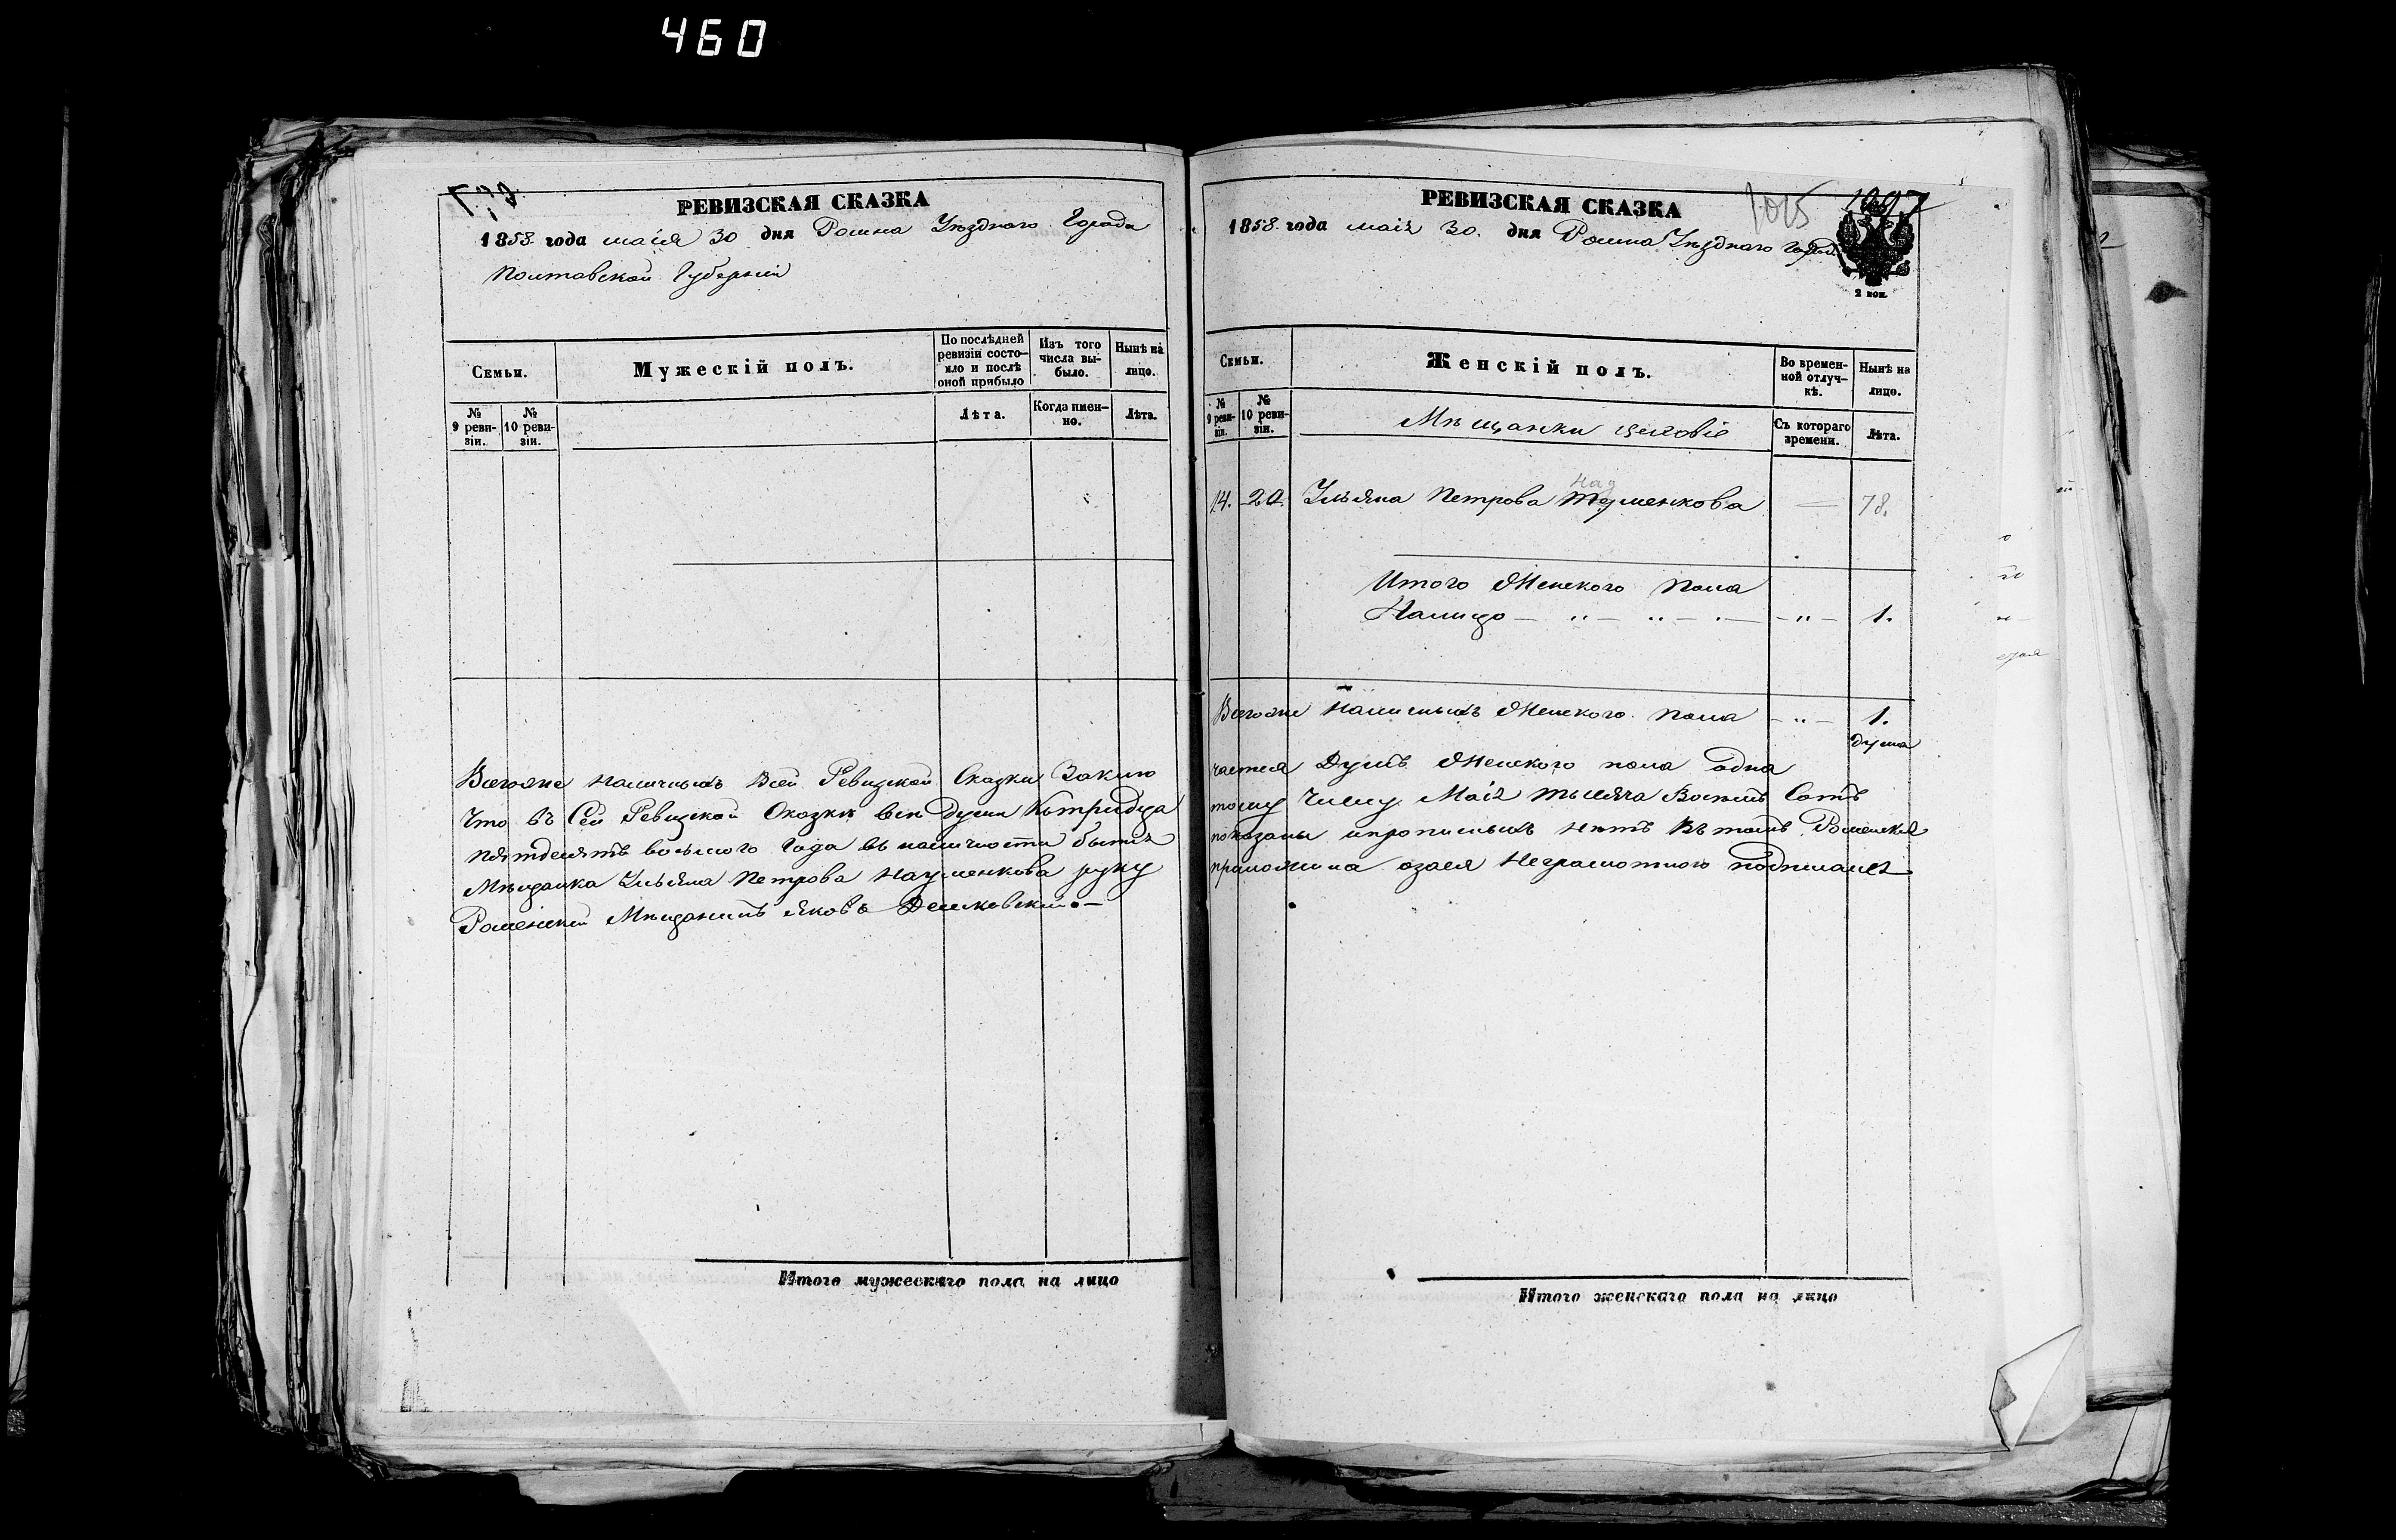 460
РЕВИЗСКАЯ СКАЗКА
1858. года маія 30 дня Ромна Уѣзднаго Города
Полтавской Губерніи
Семьи.
Мужескій полъ.
По послѣдней ревизіи состояло и послѣ оной прибыло
Изъ того числа выбыло.
Нынѣ на лицо.
№ 9 ревизіи.
№ 10 ревизіи.
Лѣта.
Когда именно.
Лѣта.
Всегоже наличныхъ Всей Ревизской Сказки Заклю
Что въ Сей Ревизской Сказкѣ всѣ Души Ктридца
пятдесятъ восьмого Года въ наличности бытія
Мѣщанка Ульяна Петрова Науменкова руку
Роменскій Мѣщанинъ Яковъ
Итого мужескаго пола на лицо
РЕВИЗСКАЯ СКАЗКА
1015
1007
1858. года маія 30. дня Ромна Уѣзднаго Города
2 коп.
Семьи.
Женскій полъ.
Во временной отлучкѣ.
Нынѣ на лицо.
№ 9 ревизіи.
№ 10 ревизіи.
Мѣщанки
Съ котораго времени.
Лѣта.
На
14. 20. Ульяна Петрова уменкова 78.
Итого Женского Пола
Налицо 1.
Всегоже Наличныхъ Женского пола 1.
душа
чается Душъ Женского пола одна
тому Числу Маія тысяча Восемъ Сотъ
показаны ипрописныхъ нѣтъ Въ томъ Роменская
приложила азаея Неграмотною подписался
Итого женскаго пола на лицо